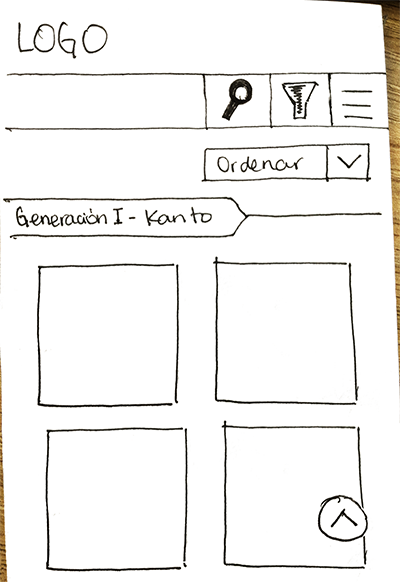 LOGO
Ordenar
Generación I - Kanto